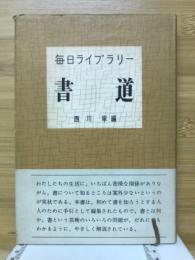 毎日ライブラリー
書道
西川 寧編
わたしたちの生活に、いちばん密接な関係がありな
がら、書について知るところは案外少ないというの
が実状である。本書は、初めて書を知ろうとする人
人のために手引として編集されたもので、書とは何
か、書という芸術のいろいろの問題が、だれにでも
わかるように、やさしく解説されている。